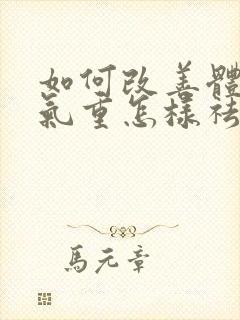 如何改善體
氣重怎樣祛
馬元章